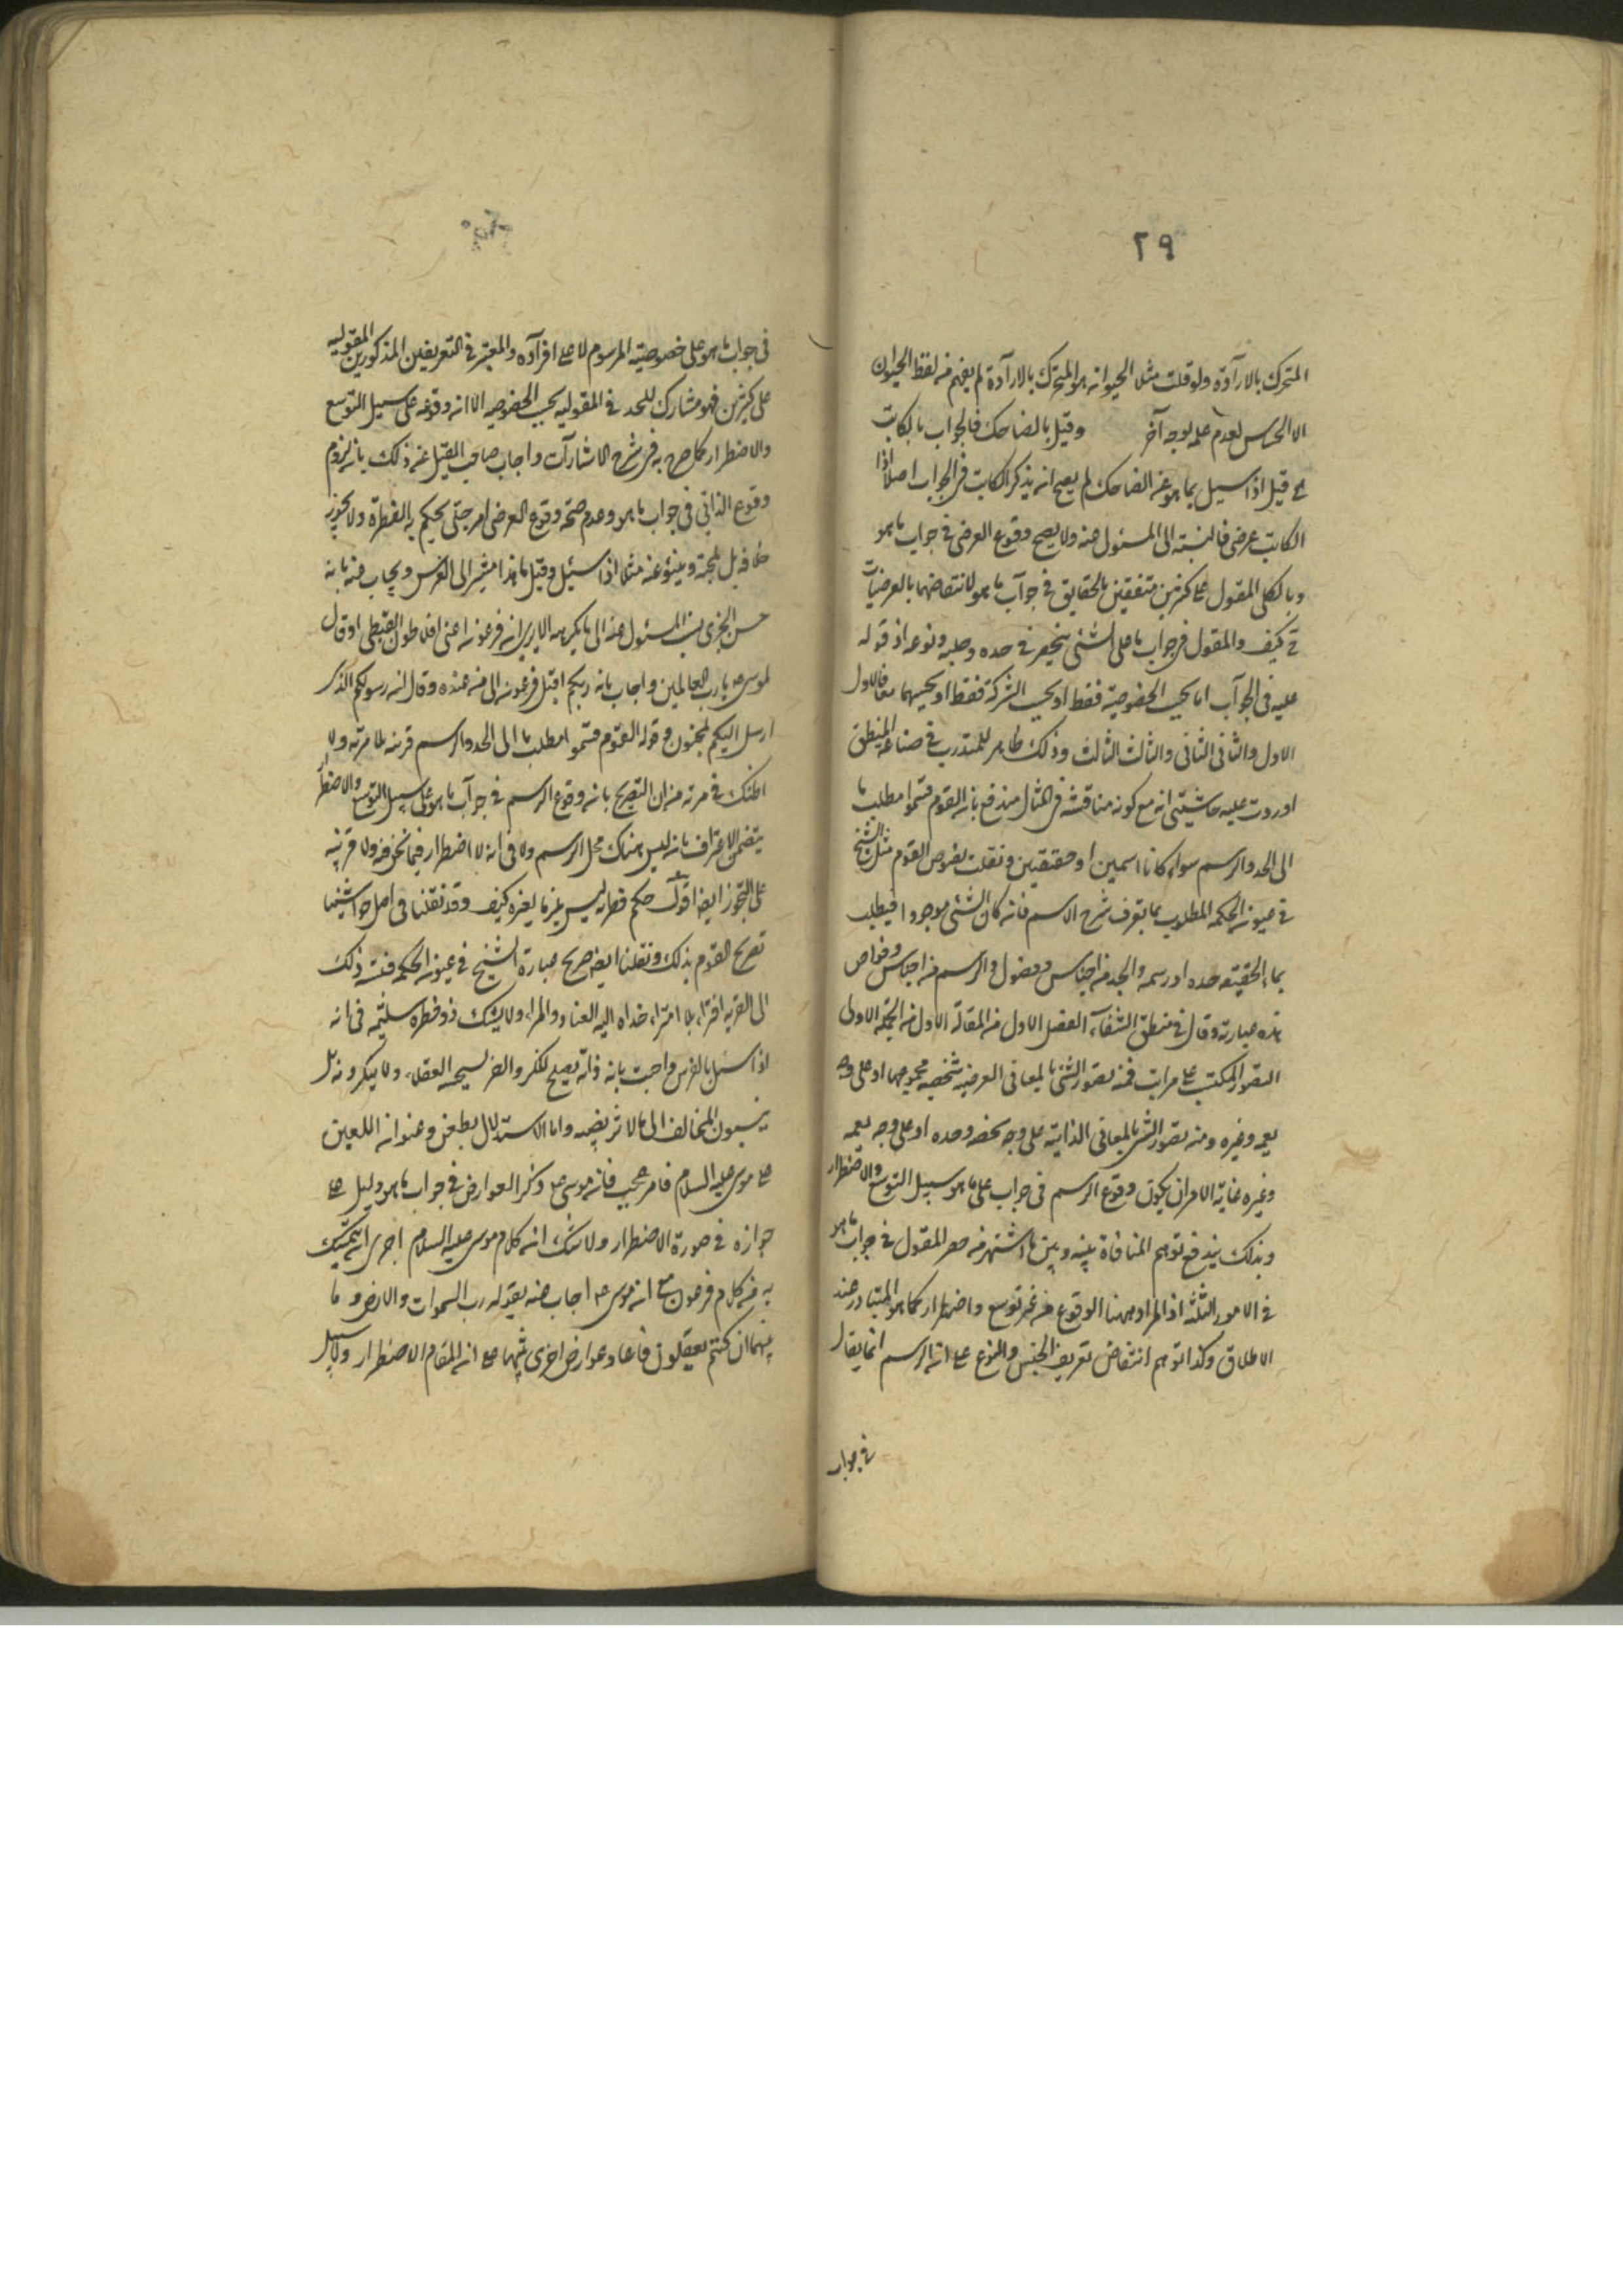 ٢٩
المتحرك بالارآدة ولو قلت مثلا الحيوانه هو المتحرك بالارآدة لم يفهم منه لفظ الحيوان
الا الحساس لعدم علمه بوجه آخر وقيل بالضاحك فالجواب بالكاتب
قيل اذا سيل بما هو عنه الضاحك لم يصح انه يذكر الكاتب فى الجواب اصلا اذا
الكاتب عرضى فالنسبة الى المسئول عنه ولا يصح وقوع العرضى فى جواب ما هو
وبالكلى المقول على كثرين متفقين بالحقايق فى جوآب ما هو لانتقاضها بالعرضيات
كيف والمقول فى جواب ما على الشئى ينحصر فى حده وجنسه ونوعه اذ قوله
عليه فى الجوآب اما بحسب الخصوصية فقط او بحسب الشركة فقط او بحسبهما معا فالاول
الاول والثانى الثانى والثالث الثالث وذلك ظاهر للمتدرب فى صناعة المنطق
اوردت عليه حاشيتى انه مع كونه مناقشه فى المثال مندفع بانه القوم قسموا مطلب ما
الى الحد والرسم سواء كانا اسمين او حقيقين ونقلت نصوص القوم مثل الشيخ
فى عيونه الحكمة المطلوب بما يعرف شرح الاسم فانه كان الشئى موجودا فيطلب
بماء الحقيقه حده او رسمه والحد منه اجناس وفصول والرسم منه اجناس وخواص
هذه عبارته وقال فى منطق الشفآء الفصل الاول منه المقالة الاول منه الجملة الاولى
التصور المكتسب على مراتب فمنه تصور الشئى بالمعانى العرضيه شخصيه مجموعها او على وجه
يعمه وغيره ومنه تصور الشئى بالمعانى الذاتية على وجه يخصه وحده او على وجه يعمه
وغيره غاية الامر ان يكون وقوع الرسم فى جواب على ما هو سبيل التوسع والاضطرار
وبذلك يندفع توهم المنافاة بينه وبين ما اشتهر منه حصر المقول فى جواب ما هو
فى الامور الثلثه اذ المراد ههنا الوقوع منه غير توسع واضطرار كما هو المتبادر عند
الاطلاق وكذا توهم انتقاض تعريف الجنس والنوع على انه الرسم انما يقال
فى جواب
فى جواب ما هو على خصوصية المرسوم لا على افرآده والمعتبر فى التعريفين المذكورين المقوليه
على كثرين فهو مشارك للحد فى المقوليه بحسب الخصوصيه الا انه وقوعه على سبيل التوسع
والاضطرار كما صرح به فى شرح الاشارآت واجاب صاحب القيل عنه ذلك بانه لزوم
وقوع الذاتى فى جواب ما هو وعدم صحة وقوع العرضى امر حتى يحكم به الفطرة ولا يجوز
خلافه بل لمجته وينبؤ عنه مثلا اذا سئيل وقيل ما هذا مشير الى الفرس ويجاب عنه بانه
حسن الجرى المسئول عنه الى ما يكرهه الا يرى انه فرعونه اعنى افلاطون القبطى اوقال
لموسى ما رب العالمين واجاب بانه ربكم اقبل فرعونه الى منه عنده وقال انه رسولكم الذى
ارسل اليكم لمجنون وقوله القوم قسموا مطلب ما الى الحد والرسم فريه بلا مرية ولا
اظنك فى مرية منه ان التصريح بانه وقوع الرسم فى جوآب ما هو على سبيل التوسع والاضطرار
يتضمن الاعتراف بانه ليس هناك محل الرسم ولا فى انه لا اضطرار فيما نحن فيه ولا قرينة
على التجوز ايضا اقول حكم فطرته ليس يلزم لغيره كيف وقد نقلنا فى اصل حواشينا
تصريح القوم بذلك ونقلنا ايضا صريح عبارة الشيخ فى عيونه الحكمه فنسبه ذلك
الى الفريه افترا، بلا امترا، هداه اليه العناد والمراء ولا يشك ذو فطره سليمه فى انه
اذا سئل بالفرس واجبت بانه ذابة تصلح للكر والفر لسيحه العقلاء ولا ينكرونه بل
ينسبون المخالف الى ما لا نرتضيه واما الاستدلال بطعن وعنوانه اللعين
على موسى عليه السلام فامر عجيب فانه موسى ذكر العوارض فى جواب ما هو دليل على
جوازه فى صورة الاضطرار ولا شك انه كلام موسى عليه السلام احرى انه يتمسك
به منه كلام فرعون مع انه موسى اجاب عنه بقوله رب السموات والارض وما
بينهما ان كنتم تعقلون فاعاد عوارض اخرى منهما مع انه المقام الاضطرار ولا سبيل